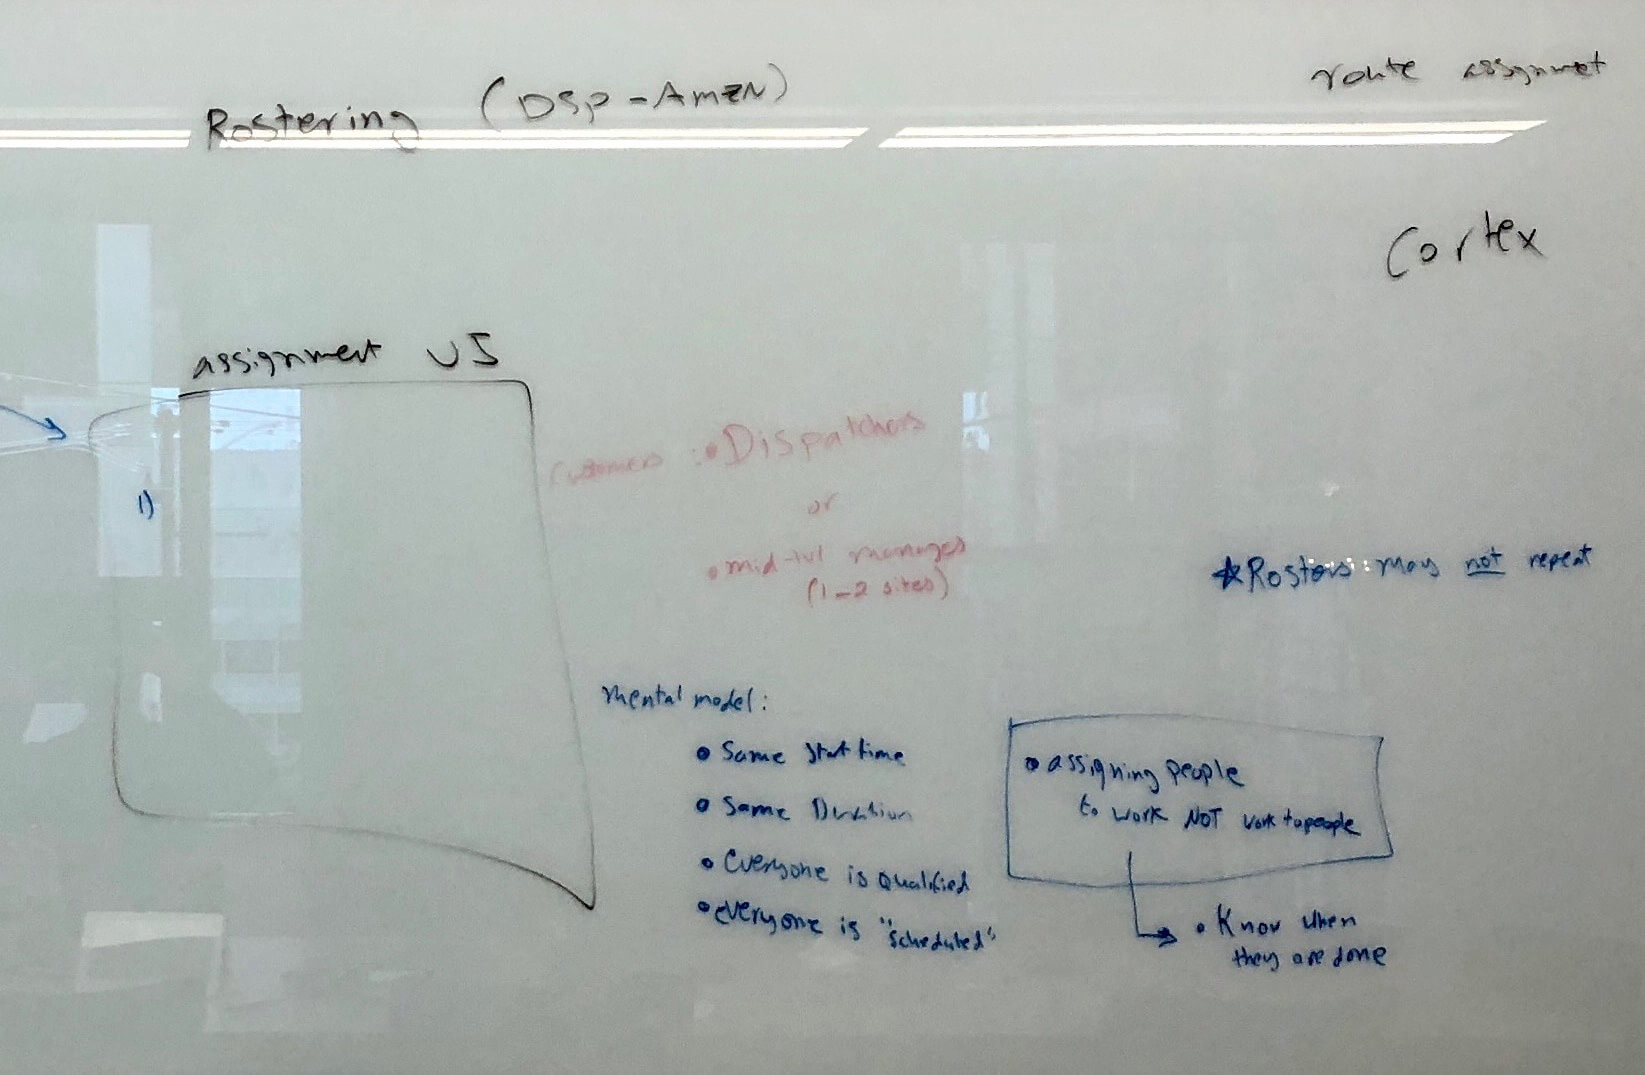 Rostering (DSP-AMZN)
route assignmet
Cortex
assignment UI
1)
Customers : • Dispatchers
or
• mid-lvl manages
(1-2 sites)
* Rosters: may not repeat
mental model:
• Same Start time
• Same Duration
• Everyone is Qualified
• everyone is "scheduled"
• assigning people
to work NOT work to people
• Know when
they are done